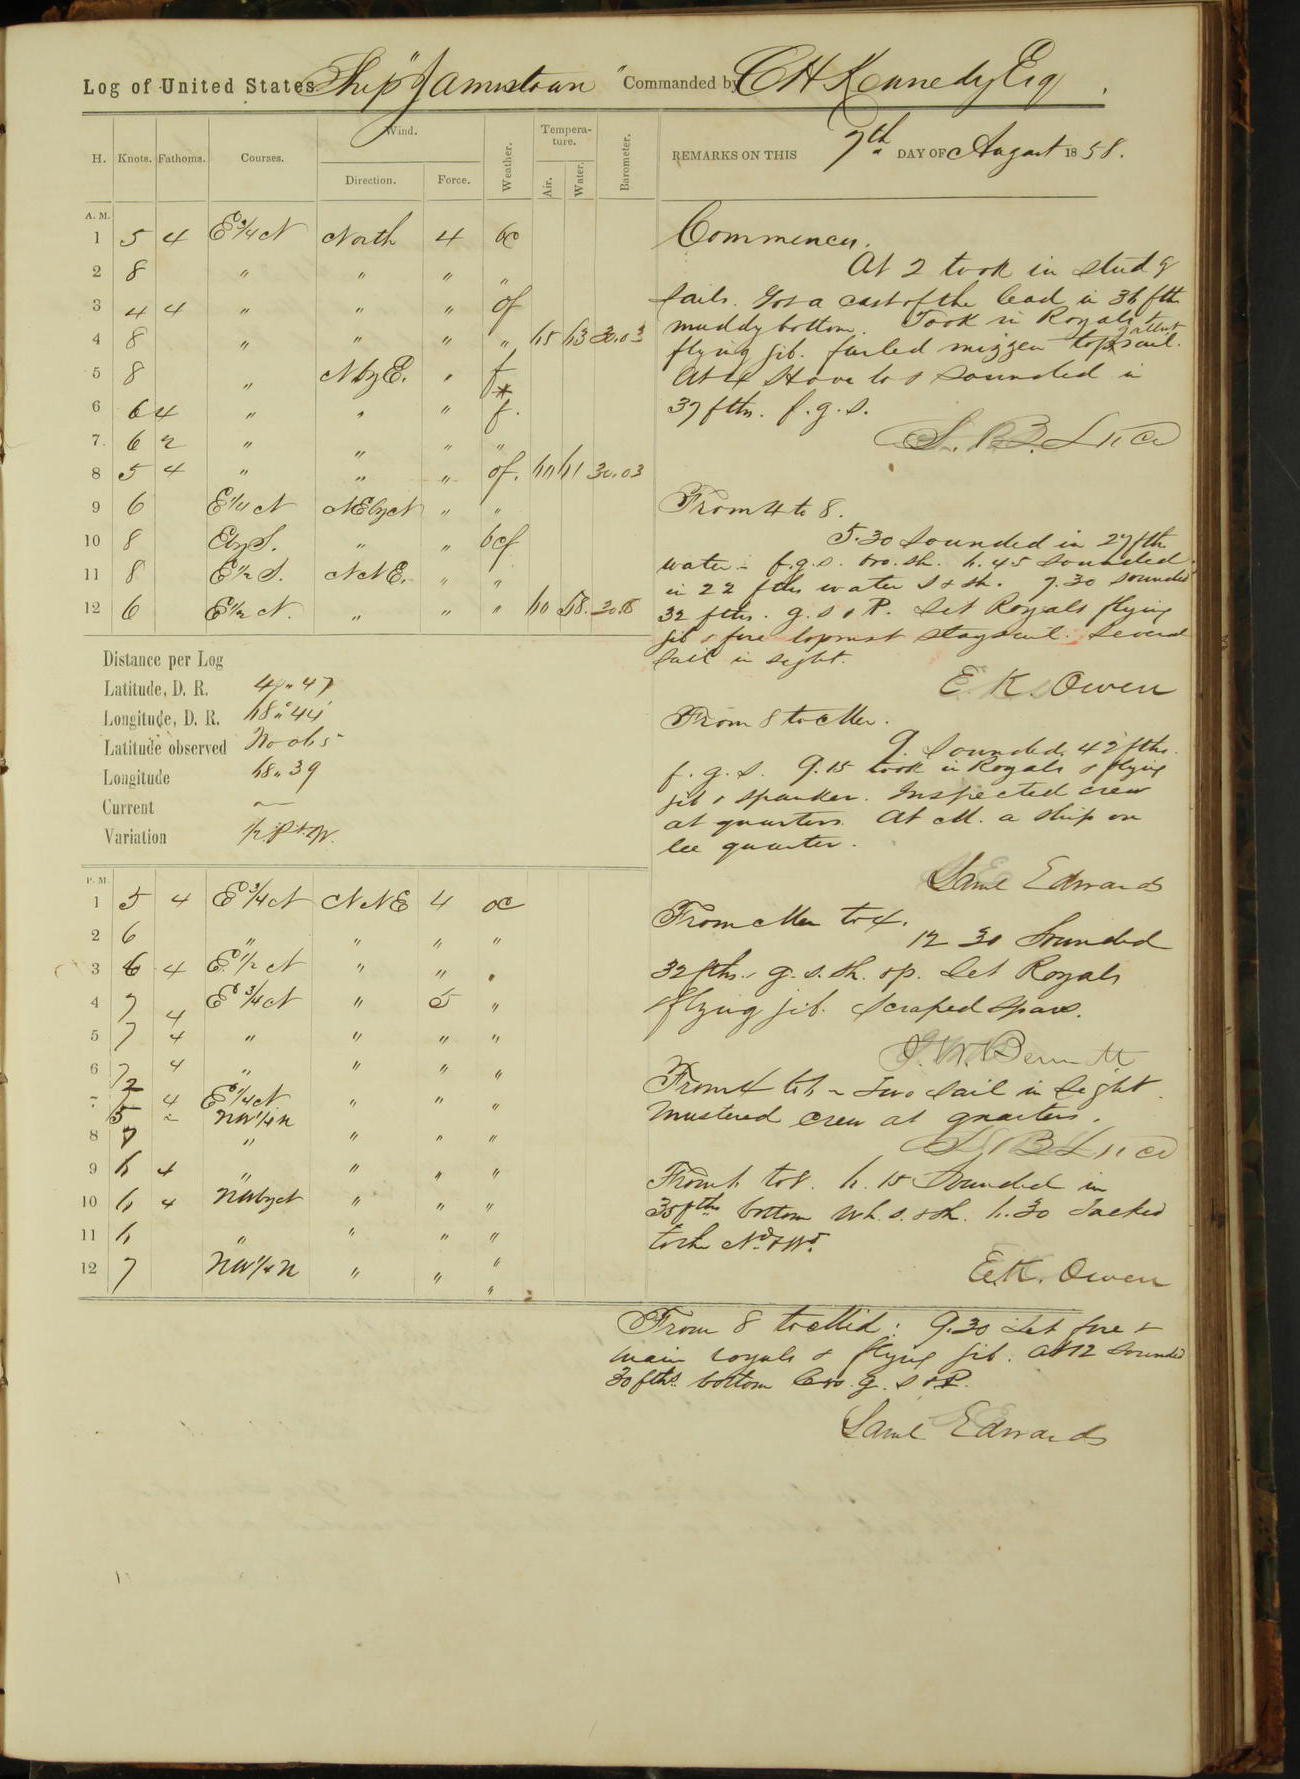 Log of United States Ship "Jamestown" Commanded by C H Kennedy Esq.
REMARKS ON THIS 7th DAY OF August 1858.
H. Knots. Fathoms. Courses. Wind. Direction. Force. Weather. Temperature. Air. Water. Barometer.
A. M.
1 5 4 E 3/4 N North 4 bc
2 8 " " " "
3 4 4 " " " of
4 8 " " " " 65 63 30.03
5 8 " N by E. " f
6 6 4 " " " f.
7. 6 2 " " " "
8 5 4 " " " of. 60 61 30.03
9 6 E 1/4 N NE by N " "
10 8 E by S. " " bcf
11 8 E 1/2 S. NNE. " "
12 6 E 1/2 N. " " " 60 58.
Commences.
At 2 took in studg
sails. Got a cast of the lead in 36 fth
muddy bottom. Took in Royals &
flying jib. furled mizzen topgallant sail.
At 4 Hove to & sounded in
37 fths. f. g. s.
S. B. Luce
From 4 to 8.
5.30 sounded in 27 fth
water - f. g. s. bro. sh. 6.45 sounded
in 22 fths water s & sh. 7.30 sounded
32 fths. g. s & P. Set Royals flying
jib & fore topmast staysail. Several
sail in sight.
E. K. Owen
Distance per Log
Latitude, D. R. 47
Longitude, D. R. 68° 44'
Latitude observed No obs
Longitude 68 " 39
Current ~
Variation
From 8 to Mer.
9. Sounded 42 fths.
f. g. s. 9.15 took in Royals & flying
jib & spanker. Inspected crew
at quarters. At M. a ship on
lee quarter.
Saml Edwards
P. M.
1 5 4 E 3/4 N NNE 4 oc
2 6 " " " "
3 6 4 E 1/2 N " "
4 7 4 E 3/4 N " 5 "
5 7 4 " " " "
6 7 4 " " " "
7 2 4 E 1/4 N " " "
5 2 NW 1/4 N
8 7 " " " "
9 6 4 " " " "
10 6 4 NW by N " " "
11 6 " " " "
12 7 NW 1/4 N " " "
From Mer to 4.
12 30 Sounded
32 fths. g. s. sh. & p. Set Royals
& flying jib. Scraped spars.
J. W. Bennett
From 4 to 6 ~ Two sail in sight.
Mustered crew at quarters.
S. B. Luce
From 6 to 8. 6.15 Sounded in
35 fths bottom wh. s. & sh. 6.30 Tacked
to the Nd & Wd.
E. K. Owen
From 8 to Mid: 9.30 set fore &
main royals & flying jib. At 12 sounded
30 fths. bottom bro. g. s & P.
Saml Edwards